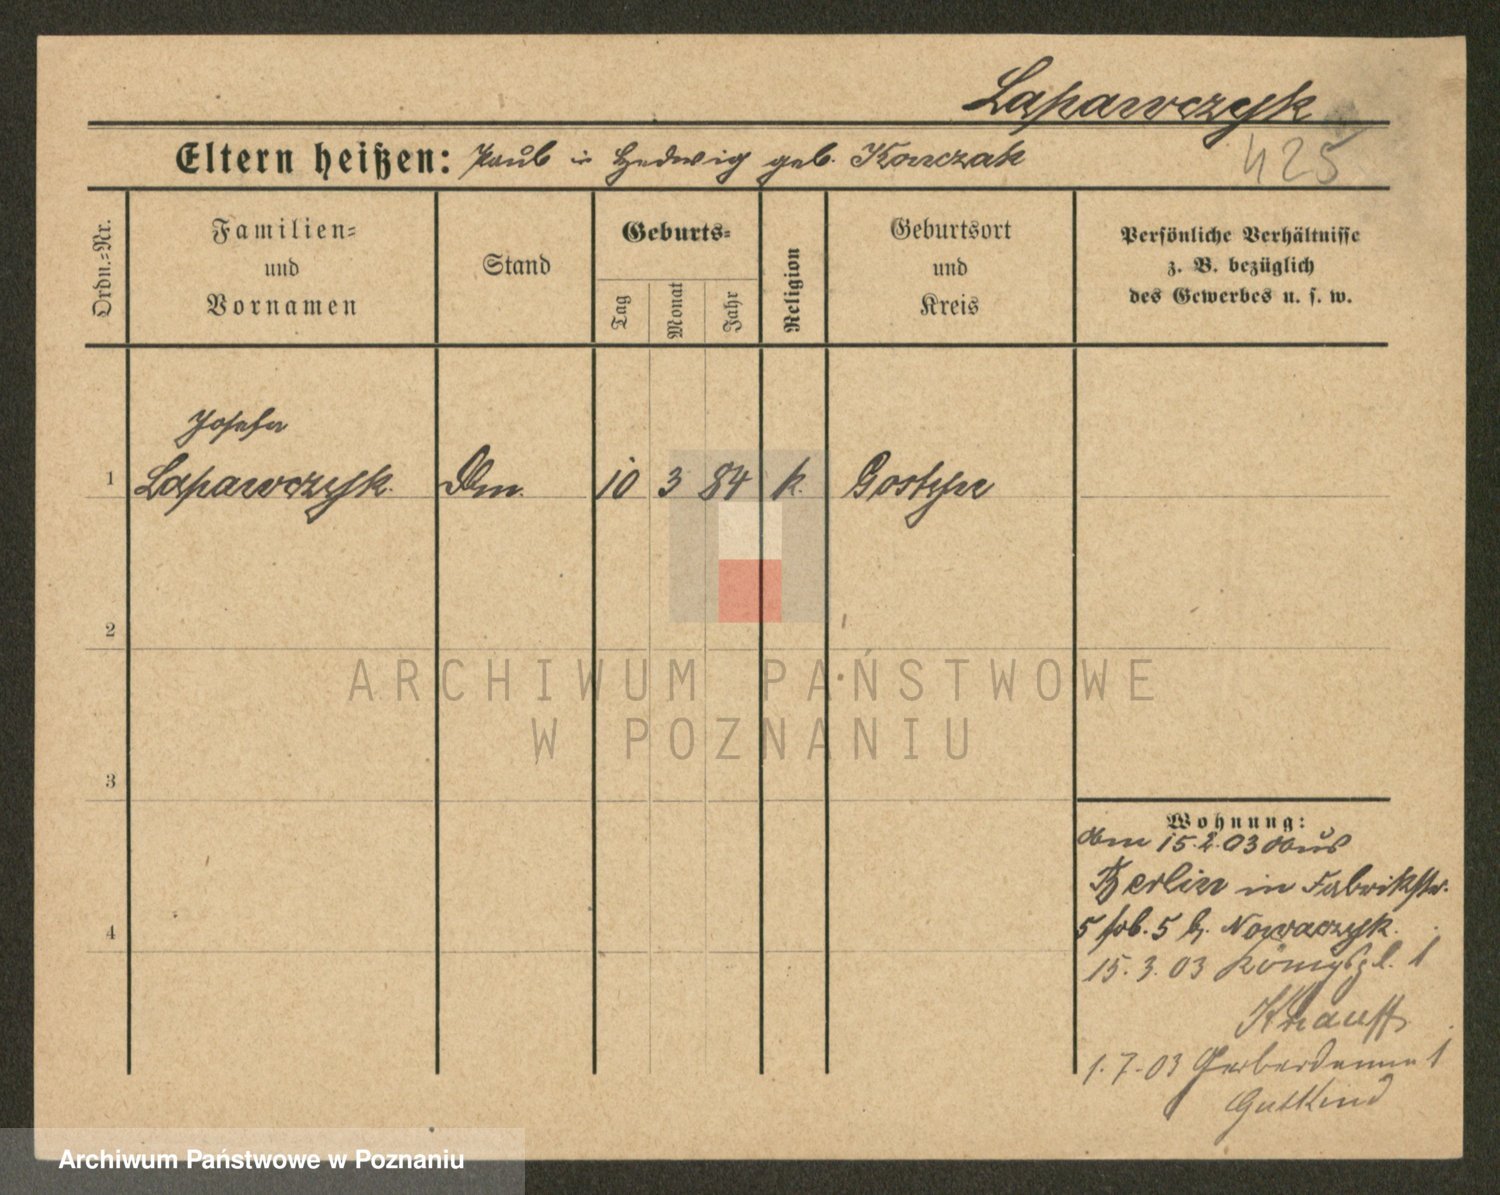 Lapawczyk
425
Eltern heißen: Jakub u Hedwig geb. Konczak
Ordn.-Nr.
Familien-
und
Vornamen
Stand
Geburts-
Tag
Monat
Jahr
Religion
Geburtsort
und
Kreis
Persönliche Verhältnisse
z. B. bezüglich
des Gewerbes u. s. w.
Josefa
1 Lapawczyk. Dm. 10 3 84 k. Gostyn
2
3
4
Wohnung:
am 15.2.03 aus
Berlin in Fabrikstr.
5 5 b. Nowaczyk.
15.3.03 Königspl. 1
Knauff
1.7.03 Gerberdamm 1
Gutkind
ARCHIWUM PAŃSTWOWE
W POZNANIU
Archiwum Państwowe w Poznaniu